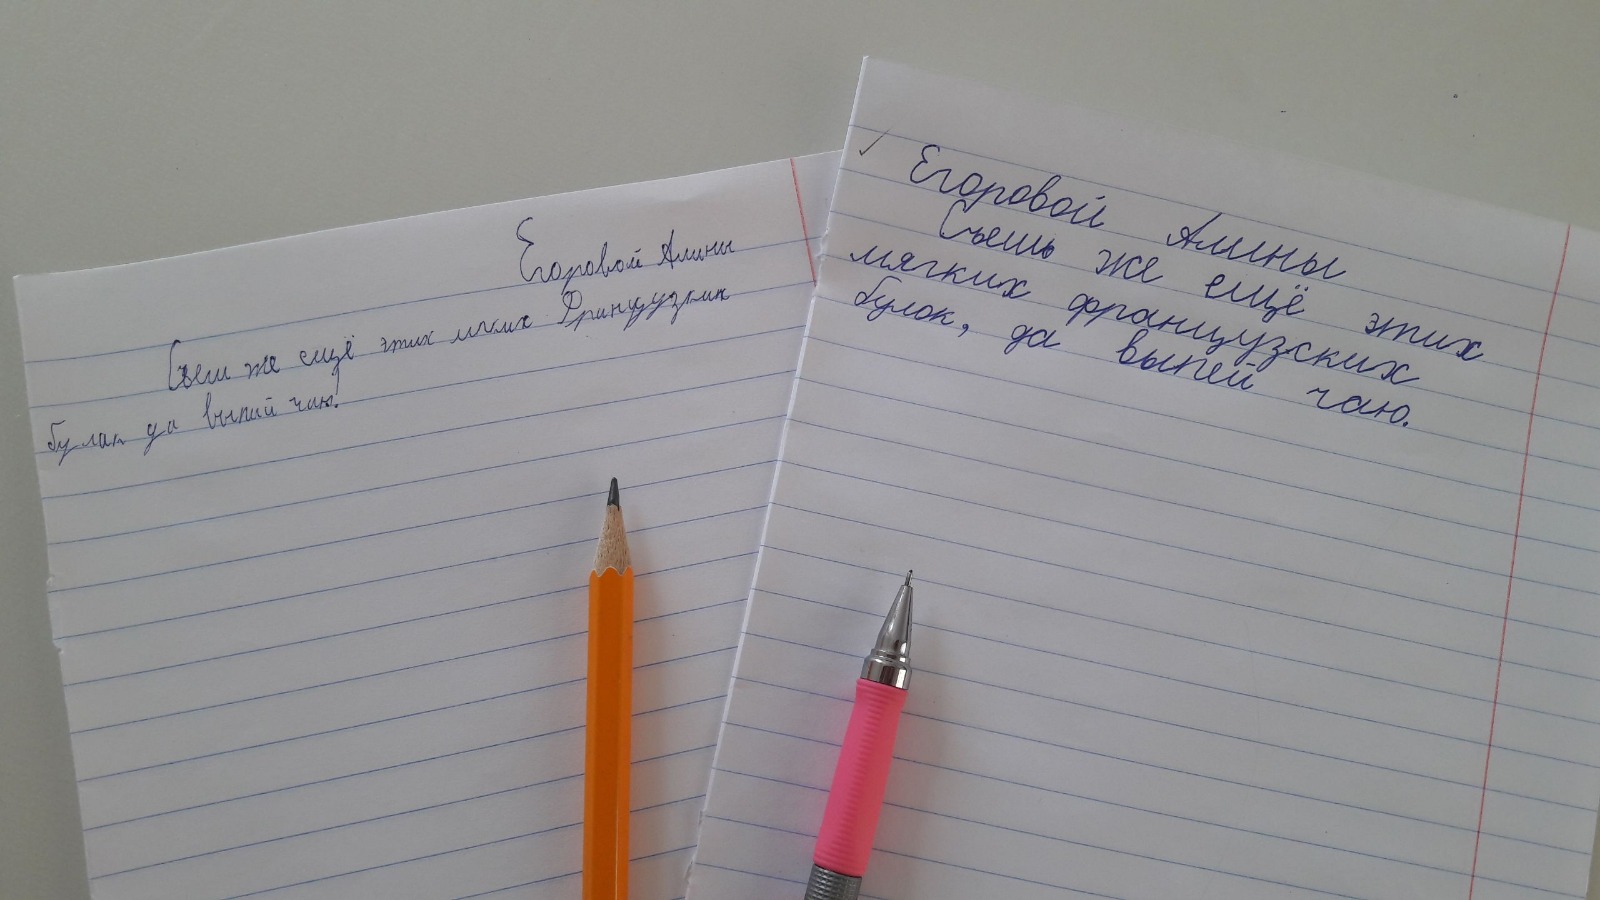 Егоровой Алины
Съеш же ещё этих мяких Французских
булак да выпий чаю!
Егоровой Алины
Съешь же ещё этих
мягких французских
булок, да выпей чаю.